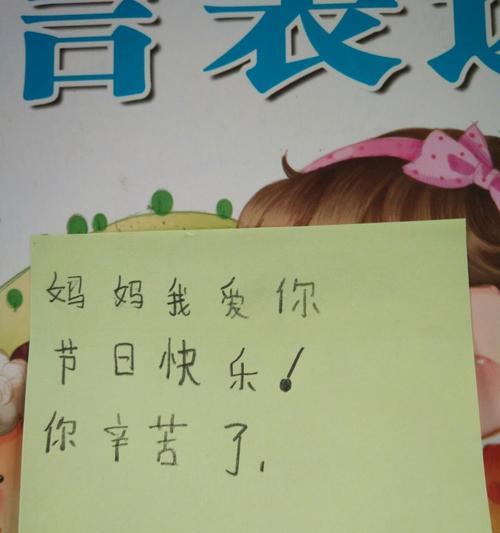 言表达
妈妈我爱你
节日快乐！
你辛苦了.